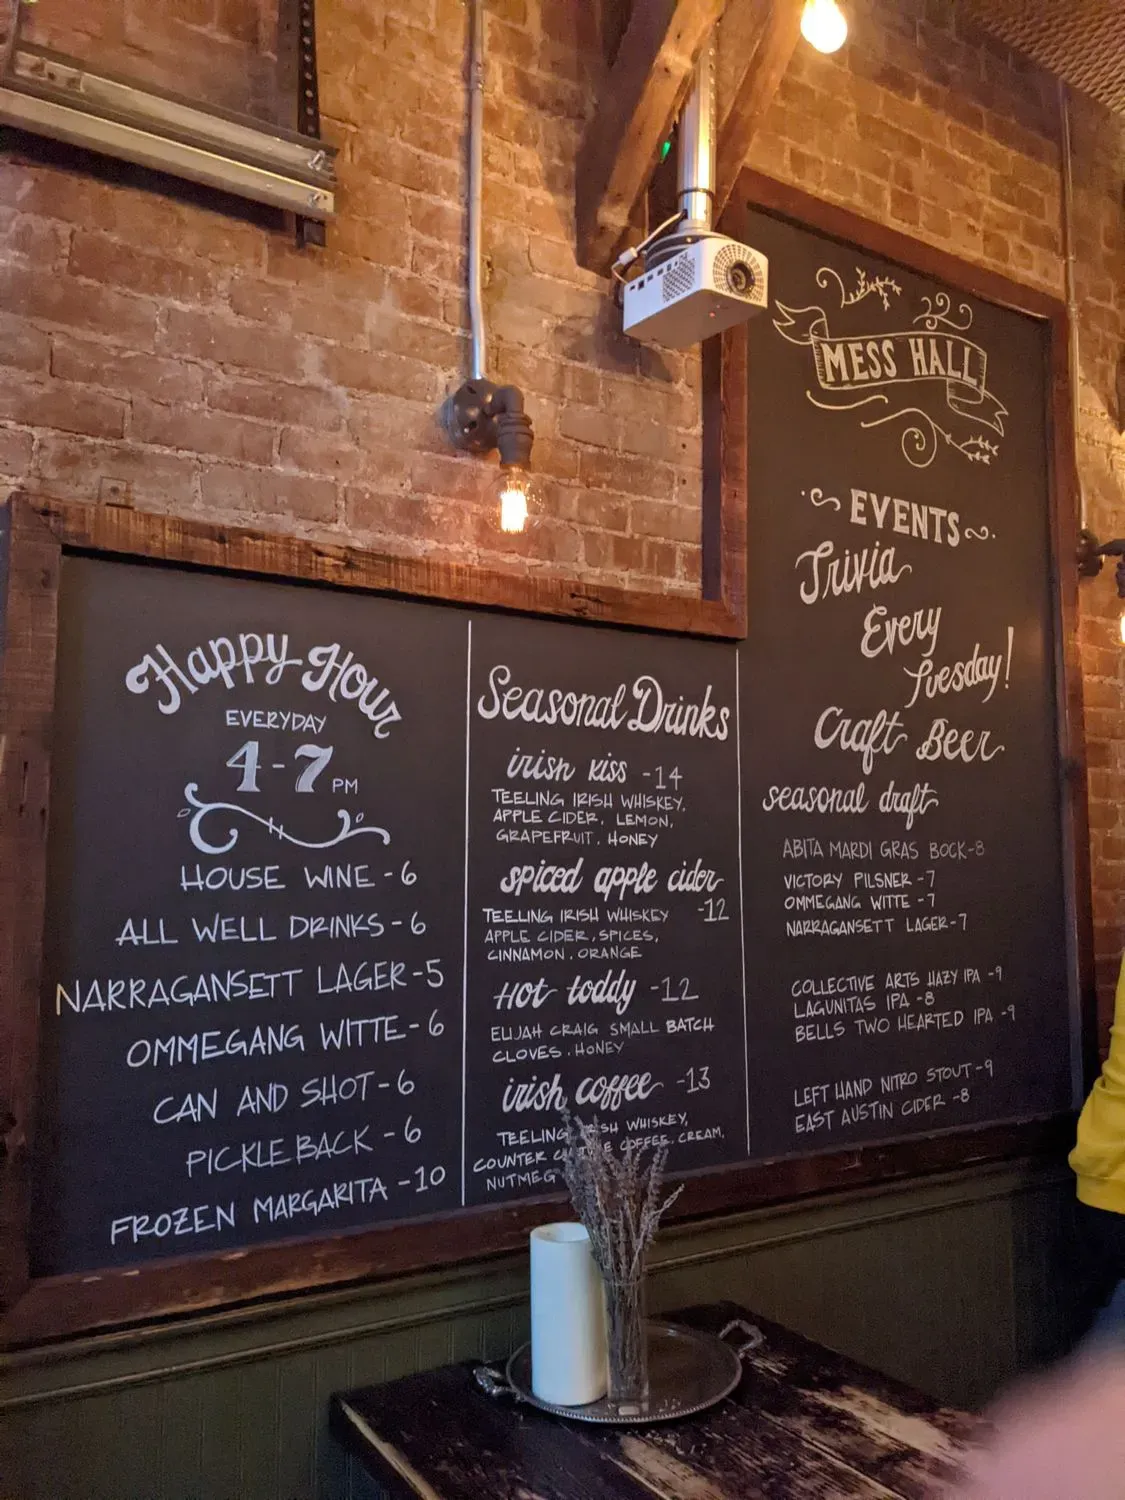 Happy Hour
EVERYDAY
4-7 PM
HOUSE WINE - 6
ALL WELL DRINKS - 6
NARRAGANSETT LAGER - 5
OMMEGANG WITTE - 6
CAN AND SHOT - 6
PICKLE BACK - 6
FROZEN MARGARITA - 10
Seasonal Drinks
irish kiss - 14
TEELING IRISH WHISKEY,
APPLE CIDER, LEMON,
GRAPEFRUIT, HONEY
spiced apple cider
TEELING IRISH WHISKEY - 12
APPLE CIDER, SPICES,
CINNAMON, ORANGE
Hot toddy - 12
ELIJAH CRAIG SMALL BATCH
CLOVES, HONEY
irish coffee - 13
TEELING IRISH WHISKEY,
COUNTER COFFEE, CREAM,
NUTMEG
MESS HALL
EVENTS
Trivia
Every
Tuesday!
Craft Beer
seasonal draft
ABITA MARDI GRAS BOCK - 8
VICTORY PILSNER - 7
OMMEGANG WITTE - 7
NARRAGANSETT LAGER - 7
COLLECTIVE ARTS HAZY IPA - 9
LAGUNITAS IPA - 8
BELLS TWO HEARTED IPA - 9
LEFT HAND NITRO STOUT - 9
EAST AUSTIN CIDER - 8